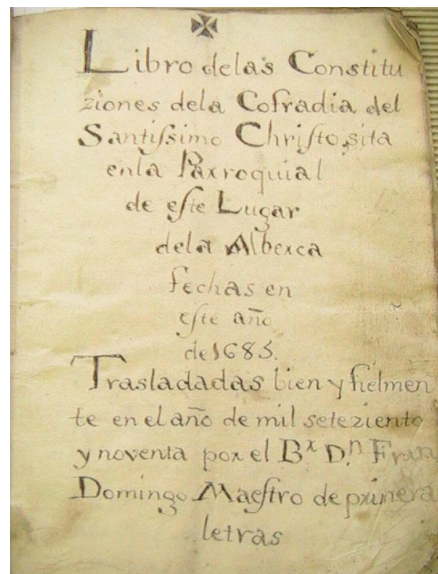 Libro delas Constitu
ziones dela Cofradia del
Santiſsimo Chriſto, sita
enla Parroquial
de eſte Lugar
dela Alberca
fechas en
eſte año
de 1685.
Trasladadas bien y fielmen
te en el año de mil seteziento
y noventa por el Bʳ Dⁿ. Fran
Domingo Maeſtro de primera
letras